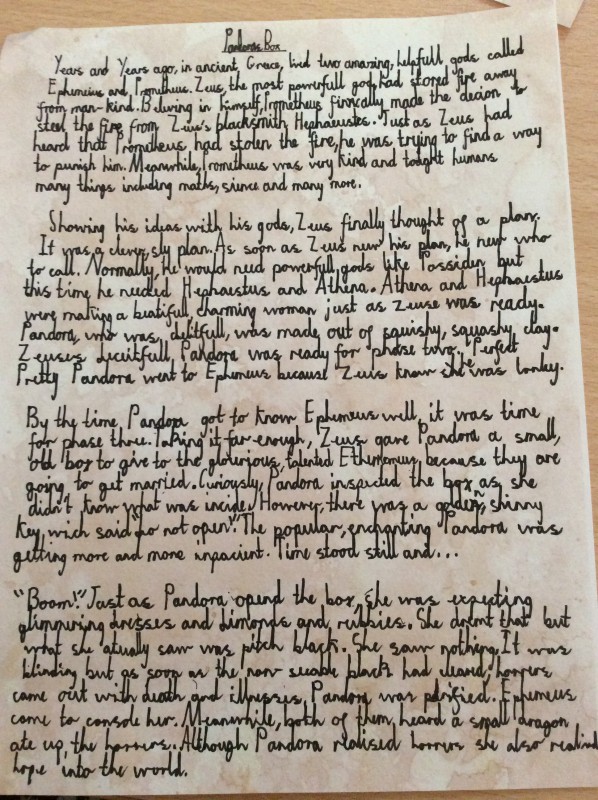 Pandoras Box
Years and Years ago, in ancient, Greece, lived two amazing, helpfull gods called
Ephemeius and, Prometheus. Zeus, the most powerfull god, had stored fire away
from man-kind. Beliving in himself, Prometheus finnically made the decion to
steal the fire from Zeus's blacksmith, Hephaeustes. Just as Zeus had
heard that Prometheus, had stolen the fire, he was trying to find a way
to punish him. Meanwhile, Prometheus was very kind and taught humans
many things including maths, sience and many more.
Showing his ideas with his gods, Zeus finally thought of a plan.
It was a clever, sly plan. As soon as Zeus new his plan, he new who
to call. Normally, He would need powerfull, gods like Possiden but
this time he needed Hephaestus and Athena. Athena and Hephaestus
were making a beatifull, charming woman just as Zeuse was ready.
Pandora, who was, delitfull, was made out of squishy, squashy, clay.
Zeuse's deceitfull, Pandora was ready for phase two. Perfect
Pretty Pandora went to Ephemeus because Zeus know she he was lonley.
By the time, Pandora got to know Ephemeus well, it was time
for phase three. Taking it far enough, Zeus gave Pandora a small,
old box to give to the glourious, talented Ethememus, because they are
going to get married. Curiously, Pandora inspected the box as, she
didn't know what was incide. However, there was a golden, shinny
key, wich said "do not open". The popular, enchanting Pandora was
getting more and more inpacient. Time stood still and...
"Boom!" Just as Pandora opend the box, she was expecting
glimmiring dresses and dimonds and, rubbies. She dremt that but
what she atually saw was pitch black. She saw nothing. It was
blinding but as soon as the non seeable black had cleared, horrers
came out with death and illnesses. Pandora was petrified. Ephemeus
came to console her. Meanwhile, both of them, heard a small dragon
ate up, the horrers. Although Pandora realised horrers she also
hope into the world.